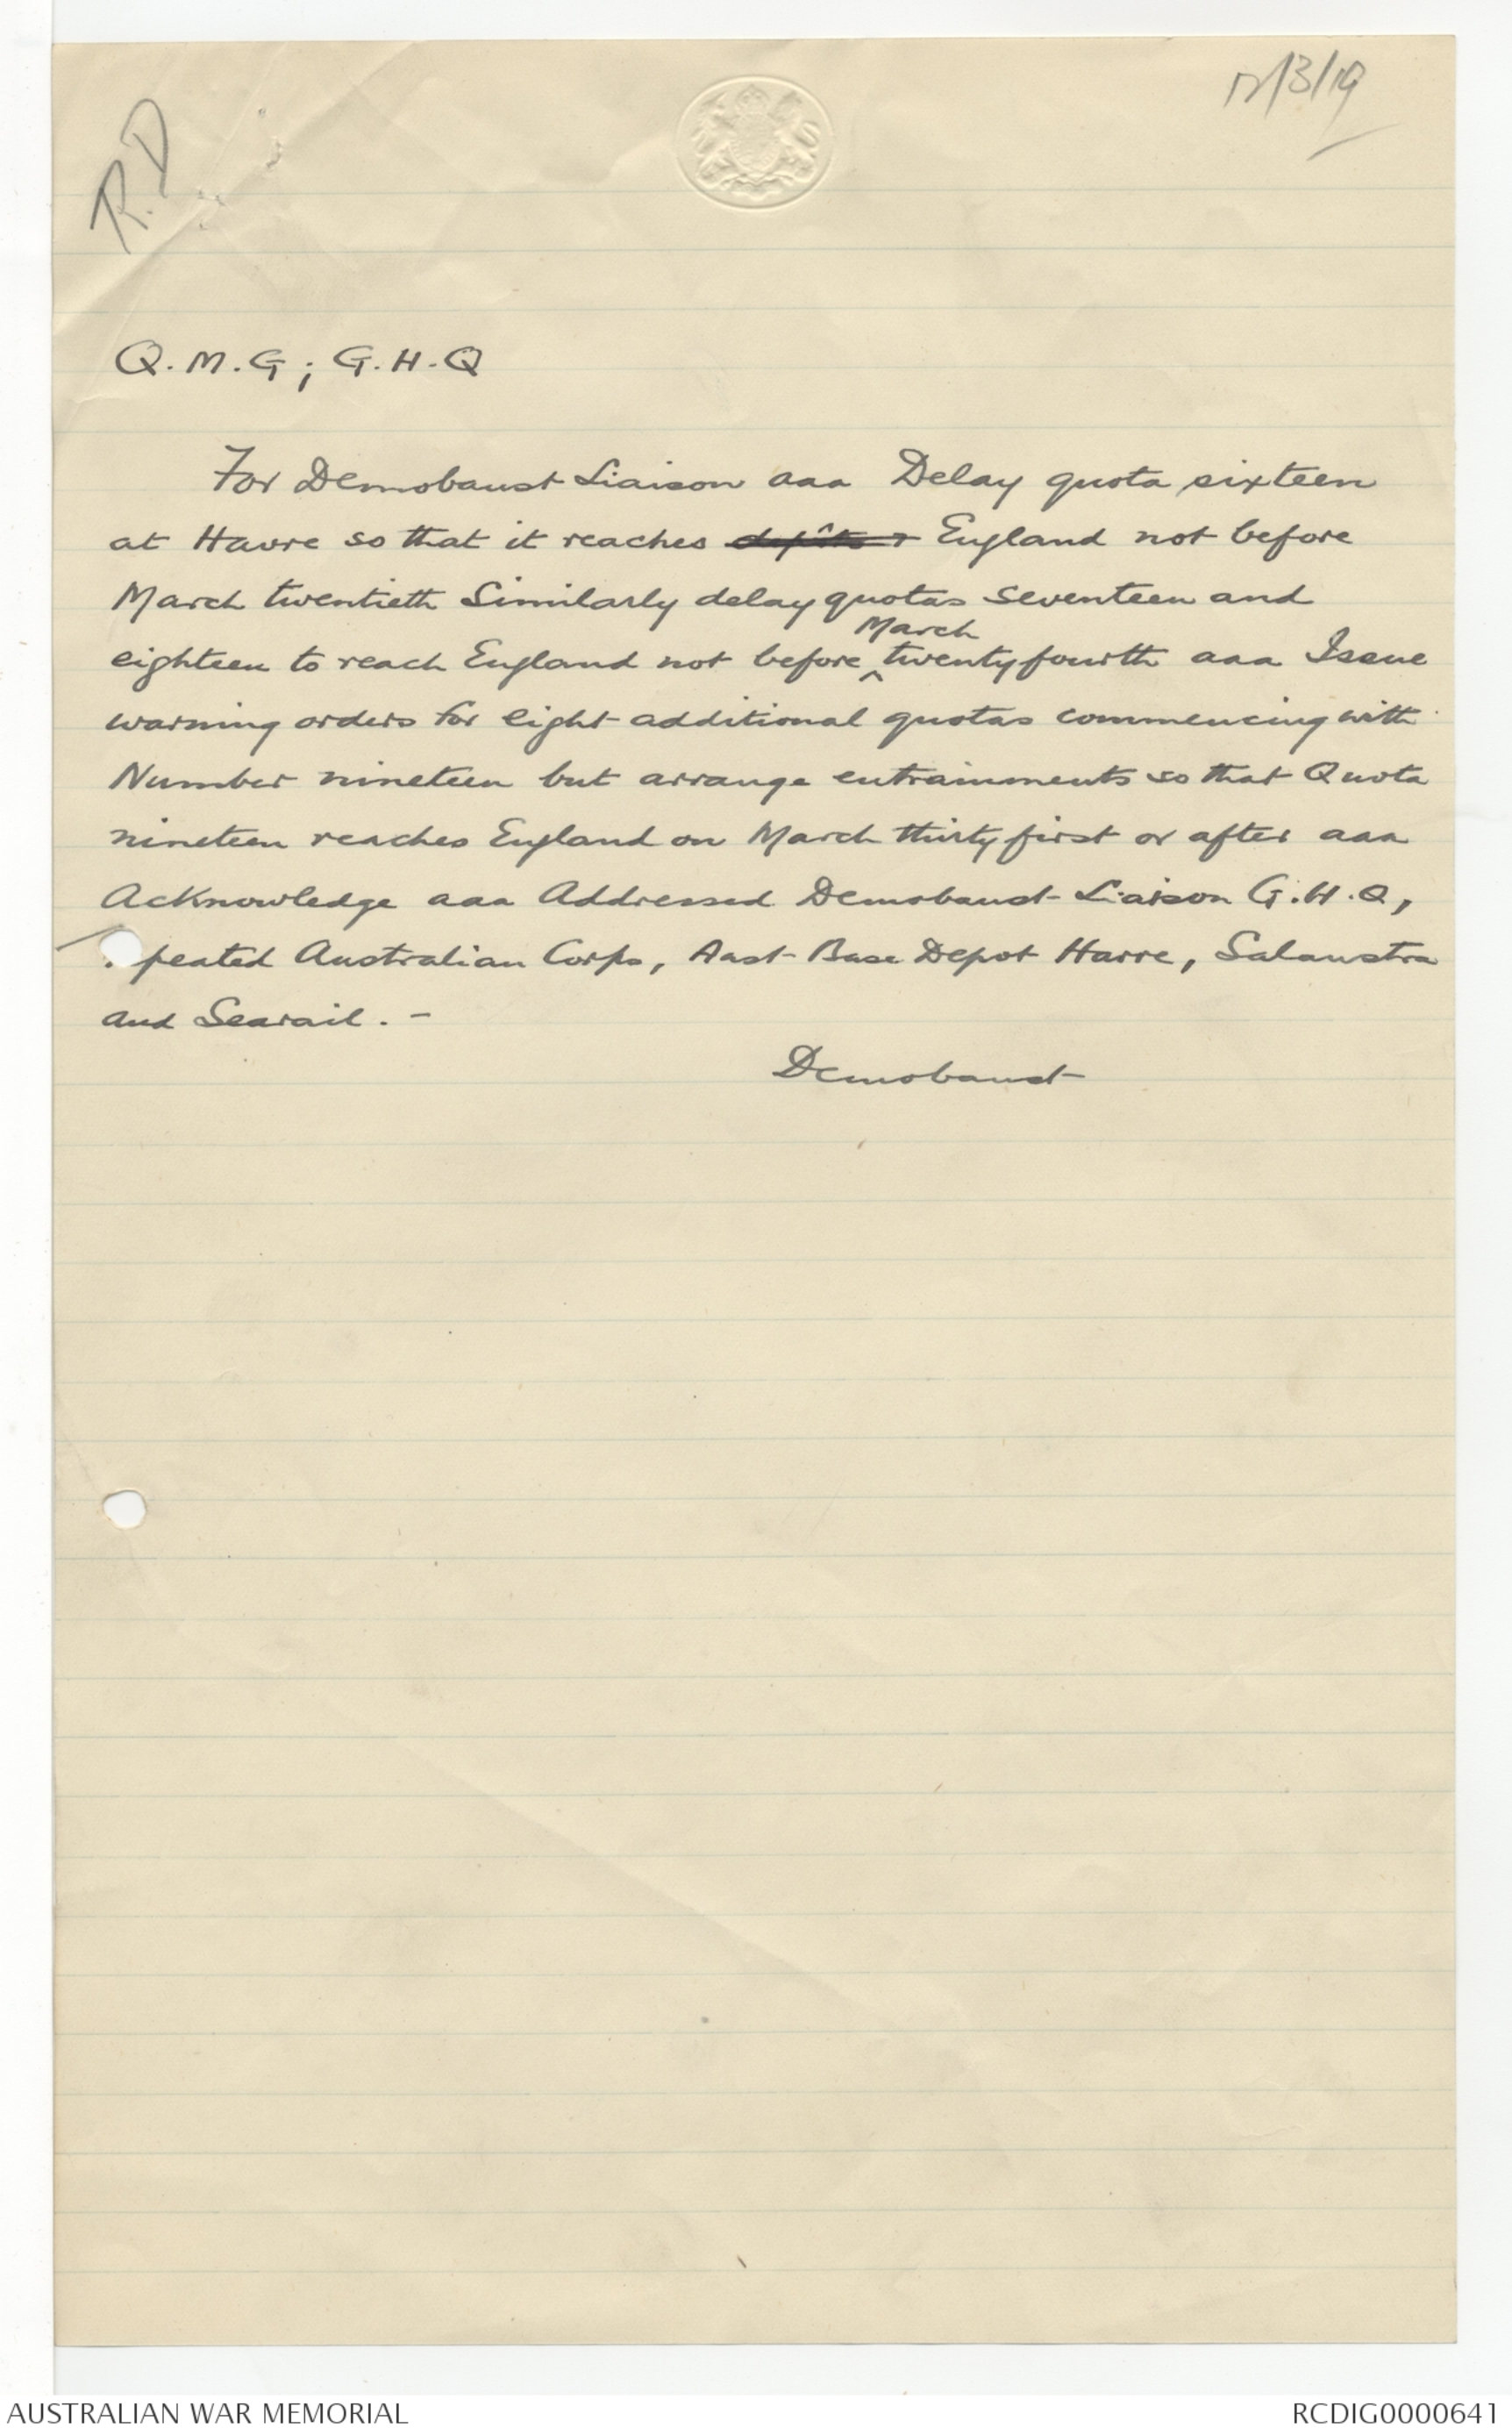 R.D
12/3/19
Q.M.G; G.H.Q
For Demobaust Liaison aaa Delay quota sixteen
at Havre so that it reaches England not before
March twentieth Similarly delay quotas seventeen and
March
eighteen to reach England not before ^ twentyfourth aaa Issue
warning orders for eight additional quotas commencing with
Number nineteen but arrange entrainments so that Quota
nineteen reaches England on March thirtyfirst or after aaa
Acknowledge aaa Addressed Demobaust Liaison G.H.Q,
peated Australian Corps, Aust Base Depot Havre, Salaustra
and Searail. -
Demobaust
AUSTRALIAN WAR MEMORIAL
RCDIG0000641